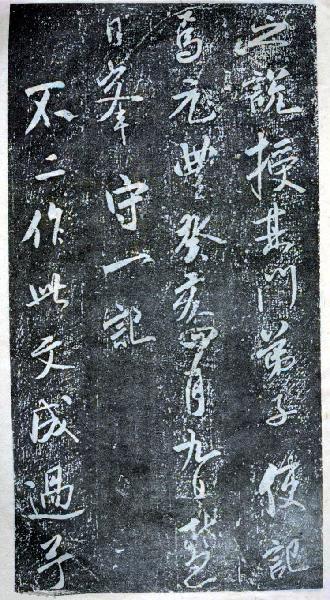 之說授其門弟子使記
焉元豐癸亥四月九日慧
日峯守一記
不二作此文成過予